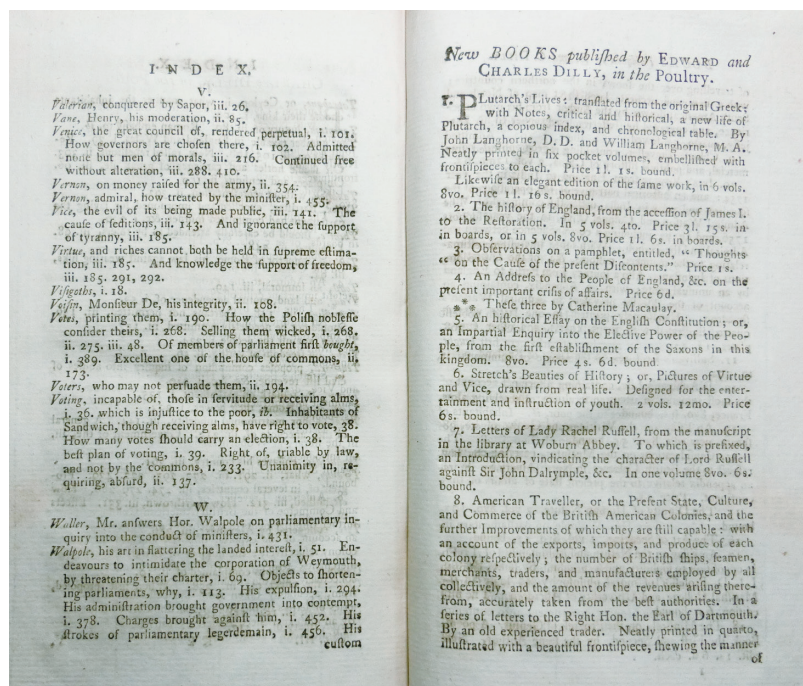 INDEX.
V.
Valerian, conquered by Sapor, iii. 26.
Vane, Henry, his moderation, ii. 85.
Venice, the great council of, rendered perpetual, i. 101.
How governors are choſen there, i. 102. Admitted
none but men of morals, iii. 216. Continued free
without alteration, iii. 288. 410.
Vernon, on money raiſed for the army, ii. 354.
Vernon, admiral, how treated by the miniſter, i. 455.
Vice, the evil of its being made public, iii. 141. The
cauſe of ſeditions, iii. 143. And ignorance the ſupport
of tyranny, iii. 185.
Virtue, and riches cannot both be held in ſupreme eſtima-
tion, iii. 185. And knowledge the ſupport of freedom,
iii. 185. 291, 292.
Viſigoths, i. 18.
Voiſin, Monſieur De, his integrity, ii. 108.
Votes, printing them, i. 190. How the Poliſh nobleſſe
conſider theirs, i. 268. Selling them wicked, i. 268.
ii. 275. iii. 48. Of members of parliament firſt bought,
i. 389. Excellent one of the houſe of commons, ii.
173.
Voters, who may not perſuade them, ii. 194.
Voting, incapable of, thoſe in ſervitude or receiving alms,
i. 36. which is injuſtice to the poor, ib. Inhabitants of
Sandwich, though receiving alms, have right to vote, 38.
How many votes ſhould carry an election, i. 38. The
beſt plan of voting, i. 39. Right of, triable by law,
and not by the commons, i. 233. Unanimity in, re-
quiring, abſurd, ii. 137.
W.
Waller, Mr. anſwers Hor. Walpole on parliamentary in-
quiry into the conduct of miniſters, i. 431.
Walpole, his art in flattering the landed intereſt, i. 51. En-
deavours to intimidate the corporation of Weymouth,
by threatening their charter, i. 69. Objects to ſhorten-
ing parliaments, why, i. 113. His expulſion, i. 294.
His adminiſtration brought government into contempt,
i. 378. Charges brought againſt him, i. 452. His
ſtrokes of parliamentary legerdemain, i. 456. His
cuſtom
New BOOKS publiſhed by EDWARD and
CHARLES DILLY, in the Poultry.
1. PLutarch's Lives: tranſlated from the original Greek;
with Notes, critical and hiſtorical, a new life of
Plutarch, a copious index, and chronological table. By
John Langhorne, D. D. and William Langhorne, M. A.
Neatly printed in ſix pocket volumes, embelliſhed with
frontiſpieces to each. Price 1 l. 1 s. bound.
Likewiſe an elegant edition of the ſame work, in 6 vols.
8vo. Price 1 l. 16 s. bound.
2. The hiſtory of England, from the acceſſion of James I.
to the Reſtoration. In 5 vols. 4to. Price 3l. 15s. in
in boards, or in 5 vols. 8vo. Price 1l. 6s. in boards.
3. Obſervations on a pamphlet, entitled, “ Thoughts
“ on the Cauſe of the preſent Diſcontents.” Price 1 s.
4. An Addreſs to the People of England, &c. on the
preſent important criſis of affairs. Price 6d.
*** Theſe three by Catherine Macaulay.
5. An hiſtorical Eſſay on the Engliſh Conſtitution; or,
an Impartial Enquiry into the Elective Power of the Peo-
ple, from the firſt eſtabliſhment of the Saxons in this
kingdom. 8vo. Price 4s. 6d. bound
6. Stretch's Beauties of Hiſtory; or, Pictures of Virtue
and Vice, drawn from real life. Deſigned for the enter-
tainment and inſtruction of youth. 2 vols. 12mo. Price
6s. bound.
7. Letters of Lady Rachel Ruſſell, from the manuſcript
in the library at Woburn Abbey. To which is prefixed,
an Introduction, vindicating the character of Lord Ruſſell
againſt Sir John Dalrymple, &c. In one volume 8vo. 6s.
bound.
8. American Traveller, or the Preſent State, Culture,
and Commerce of the Britiſh American Colonies, and the
further Improvements of which they are ſtill capable: with
an account of the exports, imports, and produce of each
colony reſpectively; the number of Britiſh ſhips, ſeamen,
merchants, traders, and manufacturers employed by all
collectively, and the amount of the revenues ariſing there-
from, accurately taken from the beſt authorities. In a
ſeries of letters to the Right Hon. the Earl of Dartmouth.
By an old experienced trader. Neatly printed in quarto,
illuſtrated with a beautiful frontiſpiece, ſhewing the manner
of